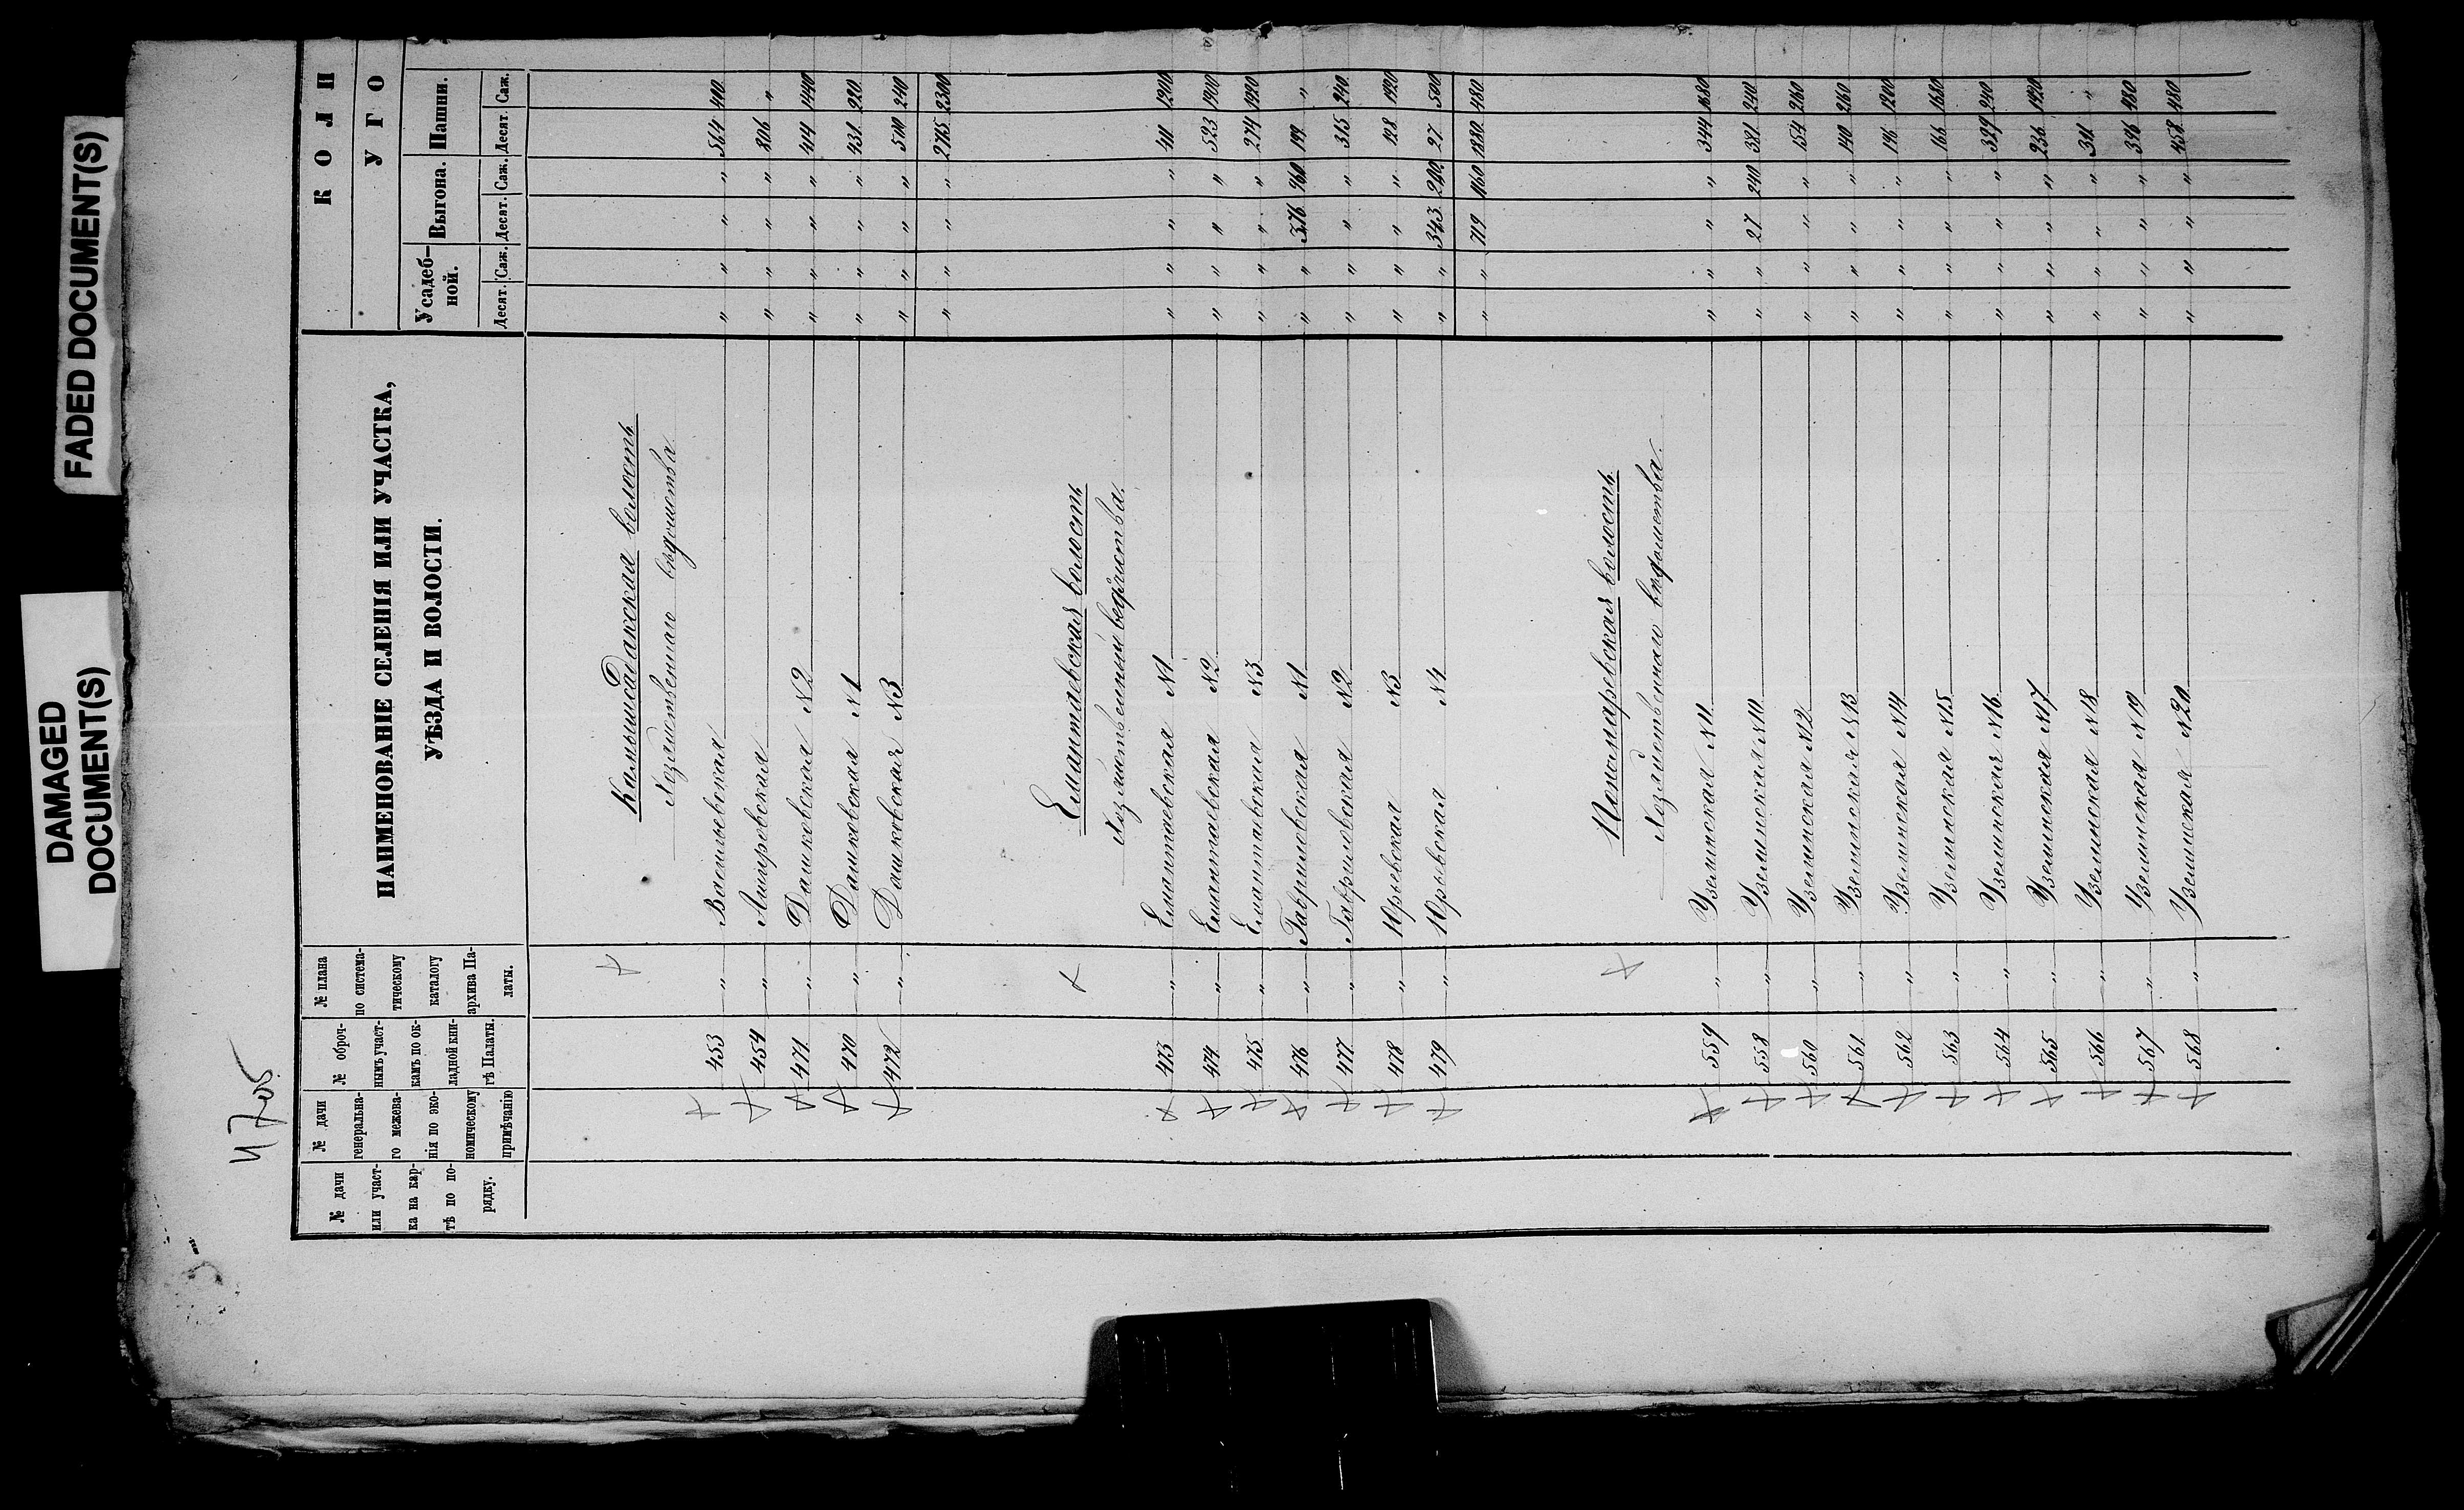 FADED DOCUMENT(S)
DAMAGED
DOCUMENT(S)
4705
КОЛИ
УГО
№ дачи или участ-ка на кар-тѣ по по-рядку.
№ дачи генерально-го межева-нія по эко-номическому примѣчанію
№ оброч-нымъ участ-камъ по ок-ладной кни-гѣ Палаты.
№ плана по система-тическому каталогу архива Па-латы.
НАИМЕНОВАНІЕ СЕЛЕНІЯ ИЛИ УЧАСТКА,
УѢЗДА И ВОЛОСТИ.
Усадеб-ной. Выгона. Пашни.
Десят. Саж. Десят. Саж. Десят. Саж.
волость
Хозяйственнаго вѣдомства
453 " Васильевская " " " " 564 400
454 " " " " " 806 "
471 " Дашковская №2 " " " " 414 1440
470 " Дашковская №1 " " " " 431 920
472 " Дашковская №3 " " " " 500 240
" " " " 2715 2300
Емантаевская волость
473 " Емантаевская №1 " " " " 411 1200
474 " Емантаевская №2 " " " " 523 1900
475 " Емантаевская №3 " " " " 274 1920
476 " Гавриловская №1 " " 376 960 199 "
477 " Гавриловская №2 " " " " 315 240
478 " Юрьевская №3 " " " " 128 1920
479 " Юрьевская №4 " " 343 200 27 500
" " 719 1160 1880 480
Пономаревская волость
Хозяйственнаго вѣдомства
559 " Уземинская №11 " " " " 344 1680
558 " Уземинская №10 " " 27 240 381 240
560 " Уземинская №12 " " " " 154 260
561 " Уземинская №13 " " " " 140 260
562 " Уземинская №14 " " " " 146 1200
563 " Уземинская №15 " " " " 166 1680
564 " Уземинская №16 " " " " 329 240
565 " Уземинская №17 " " " " 236 1920
566 " Уземинская №18 " " " " 341 "
567 " Уземинская №19 " " " " 346 480
568 " Уземинская №20 " " " " 458 480